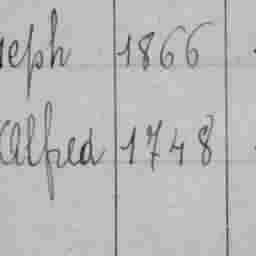 eph 1866
Alfred 1748